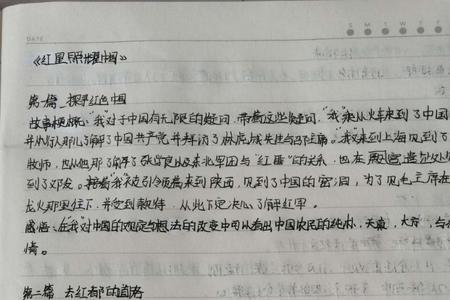 DATE
S M T W T F
《红星照耀中国》
第一篇 探寻红色中国
故事梗概:"我"对于中国有无限的疑问,带着这些疑问,"我"乘火车来到了中国
并从行人那儿了解了中国共产党并拜访了林彪 先生与邓主席。"我"又来到上海见到了
牧师,也从他那了解了张学良以及东北军团与"红匪"的关系,也在
到了邓发。接着"我"被引领着来到陕西,见到了中国的窑洞,为了见毛主席在
龙火那里住下,并受到款待,从此下定决心了解红军。
感悟:在"我"对中国的观念与想法的改变中可以看出中国农民的纯朴、天真、大方,与
情。
第二篇 去红都的道路